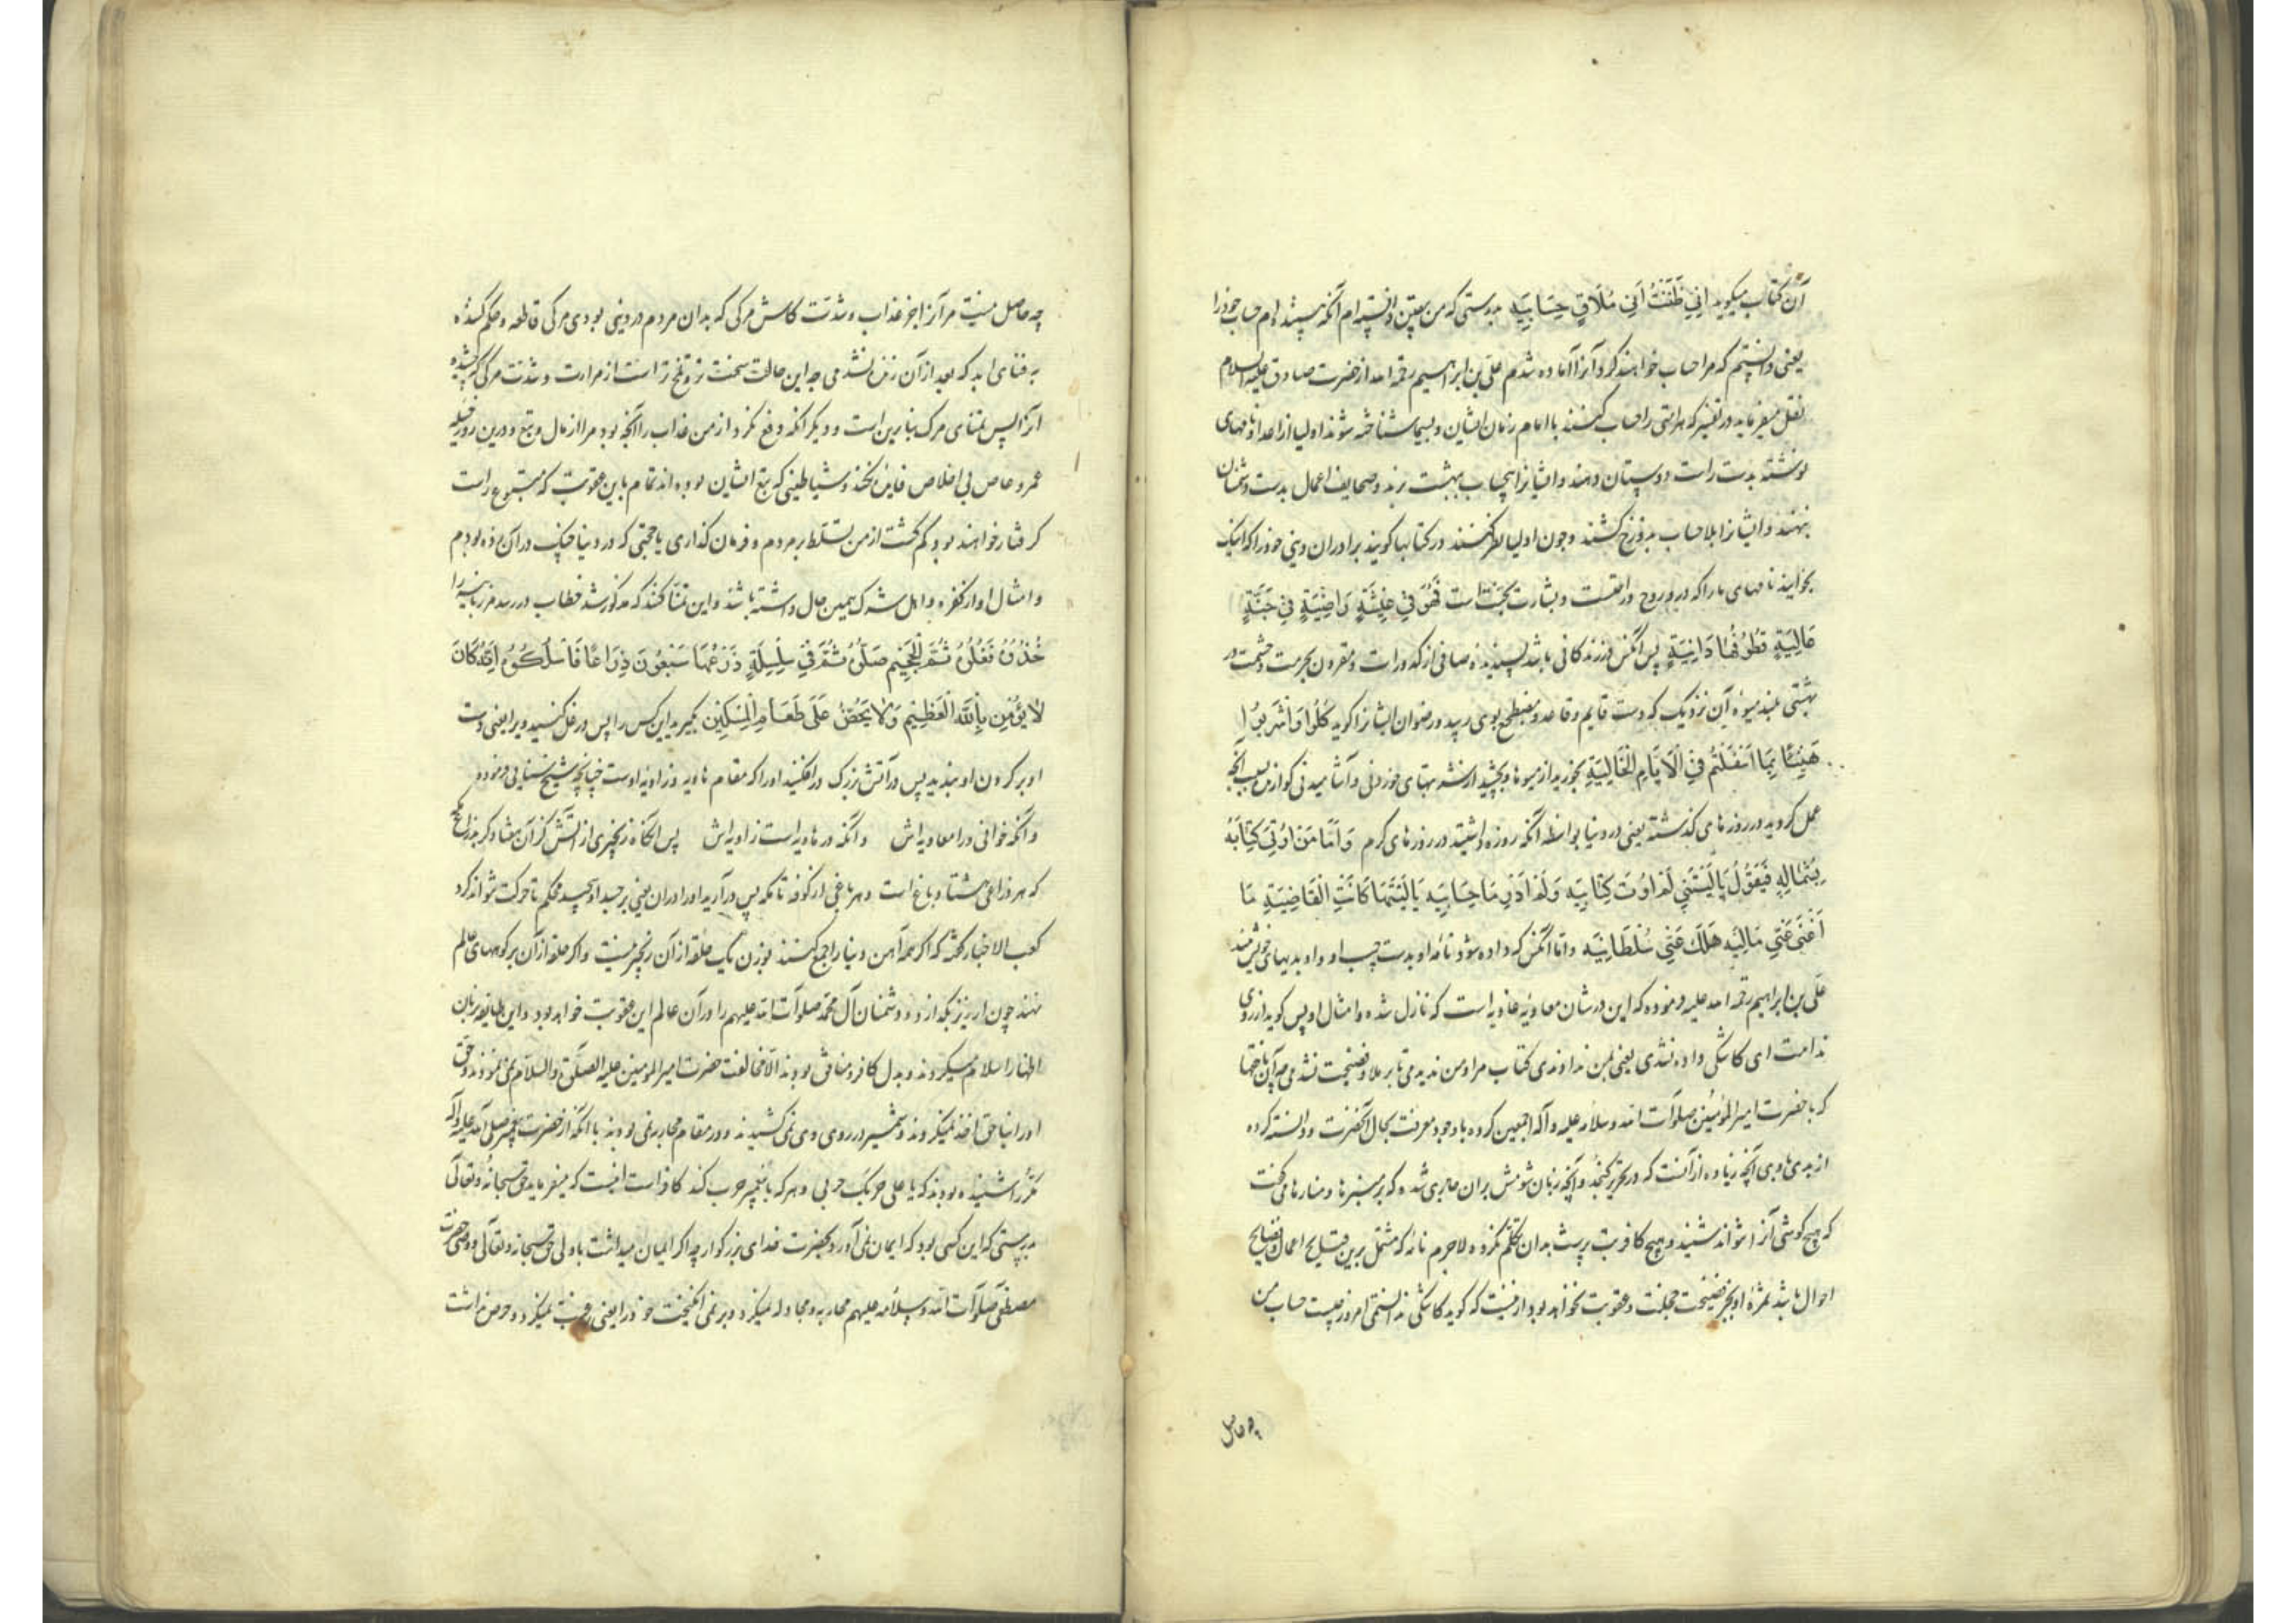 آن کتاب میکوید اِنّی ظَنَنْتُ اَنّی مُلَاقٍ حِسَابِیَه بدرستی که من بیقین دانسته ام آنکه بیننده ام حساب خود را
یعنی دانستم که مرا حساب خواهند کرد و آنرا آماده شدم علی بن ابراهیم رحمه الله از حضرت صادق علیه السلام
نقل میفرماید در تفسیر که هر امتی را حساب کنند با امام زمان ایشان و بسیما شناخته شوند اولیا از اعدا و نامهای
نوشته بدست راست دوستان دهند و ایشانرا بیحساب ببهشت برند و صحایف اعمال بدست دشمنان
نهند و ایشانرا بلا حساب بدوزخ کشند و چون اولیا نظر کنند در کتابها کویند برادران دینی خود را که اینک
بخوانید نامهای ما را که در و روح و راحتست و بشارت بجنّت است فَهُوَ فِي عِيشَةٍ رَاضِيَةٍ فِي جَنَّةٍ
عَالِيَةٍ قُطُوفُهَا دَانِيَةٌ پس آنکس در زندکانی باشد پسندیده صافی از کدورات و مقرون بحرمت و حشمت در
بهشتی بلند میوه آن نزدیک که دست قایم و قاعد و مضطجع بوی رسد و رضوان ایشانرا کوید کُلُوا وَاشْرَبُوا
هَنِيئًا بِمَا اَسْلَفْتُمْ فِي الْاَيَّامِ الْخَالِيَةِ بخورید از میوها و بچشید از شربتهای خوردنی و آشامیدنی کوارا بسبب آنچه
عمل کردید در روزهای کذشته یعنی در دنیا بواسطه آنکه روزه داشتید در روزهای کرم وَاَمَّا مَنْ اُوتِيَ كِتَابَهُ
بِشِمَالِهِ فَيَقُولُ يَا لَيْتَنِي لَمْ اُوتَ كِتَابِيَه وَلَمْ اَدْرِ مَا حِسَابِيَه يَا لَيْتَهَا كَانَتِ الْقَاضِيَةَ مَا
اَغْنَى عَنِّي مَالِيَه هَلَكَ عَنِّي سُلْطَانِيَه و اما آنکس که داده شود نامه او بدست چپ او و او بدیهای خویش بیند
علی بن ابراهیم رحمه الله علیه فرموده که این در شان معاویه غاویه است که نازل شده و امثال او پس کوید از روی
ندامت ای کاشکی داده نشدی یعنی بمن ندادندی کتاب مرا و من ندیدمی تا بر ملا فضیحت نشدمی
که با حضرت امیر المؤمنین صلوات الله و سلامه علیه و آله اجمعین کرده با وجود معرفت بحال آنحضرت و دانسته کرده
از بدیهای وی آنچه زیاده از آنست که در تحریر کنجد و آنچه زبان شومش بران جاری شده که بر منبرها و منارها می کفت
که هیچ کوشی آنرا نتواند شنید و هیچ کافر بت پرست بدان تکلم نکرده لاجرم نامه که مشتمل برین قبایح اعمال و فضایح
احوال باشد ثمره او بجز فضیحت و خجلت و عقوبت نخواهد بود ازینست که کوید کاشکی ندانستمی امروز چیست حساب من
چه حاصل
چه حاصل نیست مرا آنرا بجز عذاب و شدت کاش مرکی که بدان مردم در دنیی بودی مرکی قاطعه و حکم کننده
به فنای ابد که بعد از آن زنده نشدمی چه این حالت سخت تر و تلخ تر است از مرارت و شدت مرکی که چشیده
ام آنرا پس تمنای مرک بنا برین است و دیکر آنکه دفع نکرد از من عذاب را آنچه بود مرا از مال و تبع و درین روز
عمرو عاص بی اخلاص فایده نکند و شیاطینی که تبع ایشان بوده اند تمام باین عقوبت که متبوع راست
کرفتار خواهند بود کم کشت از من تسلط بر مردم و فرمان کذاری یا حجتی که در دنیا چنک در آن زده بودم
و امثال او از کفره و اهل شرک همین حال داشته باشد و این تمنا کنند که مذکور شد خطاب در رسد مر زبانیه را
خُذُوهُ فَغُلُّوهُ ثُمَّ الْجَحِيمَ صَلُّوهُ ثُمَّ فِي سِلْسِلَةٍ ذَرْعُهَا سَبْعُونَ ذِرَاعًا فَاسْلُكُوهُ اِنَّهُ كَانَ
لَا يُؤْمِنُ بِاللَّهِ الْعَظِيمِ وَلَا يَحُضُّ عَلَى طَعَامِ الْمِسْكِينِ بکیرید این کس را پس در غل کنید ویرا یعنی دست
او بر کردن او بندید پس در آتش بزرک در افکنید او را که مقام هاویه و زاویه اوست چنانچه شیخ سنایی فرموده
وانکه خوانی ورا معاویه اش وانکه در هاویه است زاویه اش پس آنکاه زنجیری از آتش که آن هفتاد کز بذراع
که هر ذراعی هشتاد باغ است و هر باغی از کوفه تا مکه پس در آرید او را در ان یعنی بر جسد او پیچید محکم تا حرکت نتواند کرد
کعب الاخبار کفته که اکر همه آهن دنیا را جمع کنند بوزن یک حلقه از آن زنجیر نیست و اکر حلقه از آن بر کوههای عالم
نهند چون ارزیز بکدازد و دشمنان آل محمد صلوات الله علیهم را در آن عالم این عقوبت خواهد بود و این طایفه بزبان
اظهار اسلام میکردند و بدل کافر و منافق بودند الا مخالفت حضرت امیر المومنین علیه الصلوة والسلام نمی نمودند و حق
او را بناحق اخذ نمیکردند و شمشیر در روی وی نمی کشیدند و در مقام محاربه نمی بودند با آنکه از حضرت پیغمبر صلی الله علیه وآله
مکرر شنیده بودند که یا علی حربک حربی و هر که با پیغمبر حرب کند کافر است اینست که میفرماید حق سبحانه و تعالی
بدرستی که این کسی بود که ایمان نمی آورد بحضرت خدای بزرکوار چه اکر ایمان میداشت با ولی حق سبحانه و تعالی و وصی حضرت
مصطفی صلوات الله و سلامه علیهم محاربه و مجادله نمیکرد و بر نمی انکیخت خود را یعنی رغبت نمیکرد و حرص نداشت